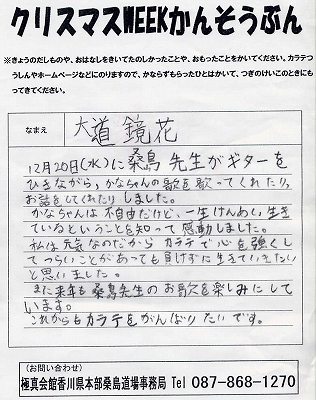 クリスマスWEEKかんそうぶん
※きょうのだしものや、おはなしをきいてたのしかったことや、おもったことをかいてください。カラテつ
うしんやホームページなどにのりますので、かならずもらったひとはかいて、つぎのけいこのときにも
ってきてください。
なまえ 大道 鏡花
12月20日(水)に桑島先生がギターを
ひきながら、かなちゃんの歌を歌ってくれたり、
お話をしてくれたりしました。
かなちゃんは不自由だけど、一生けんめい、生き
ているということを知って感動しました。
私は元気なのだから カラテで心を強くし
てつらいことがあっても負けずに生きていきたい
と思いました。
また来年も桑島先生のお歌を楽しみにして
います。
これからもカラテをがんばりたいです。
(お問い合わせ)
極真会館香川県本部桑島道場事務局 Tel 087-868-1270